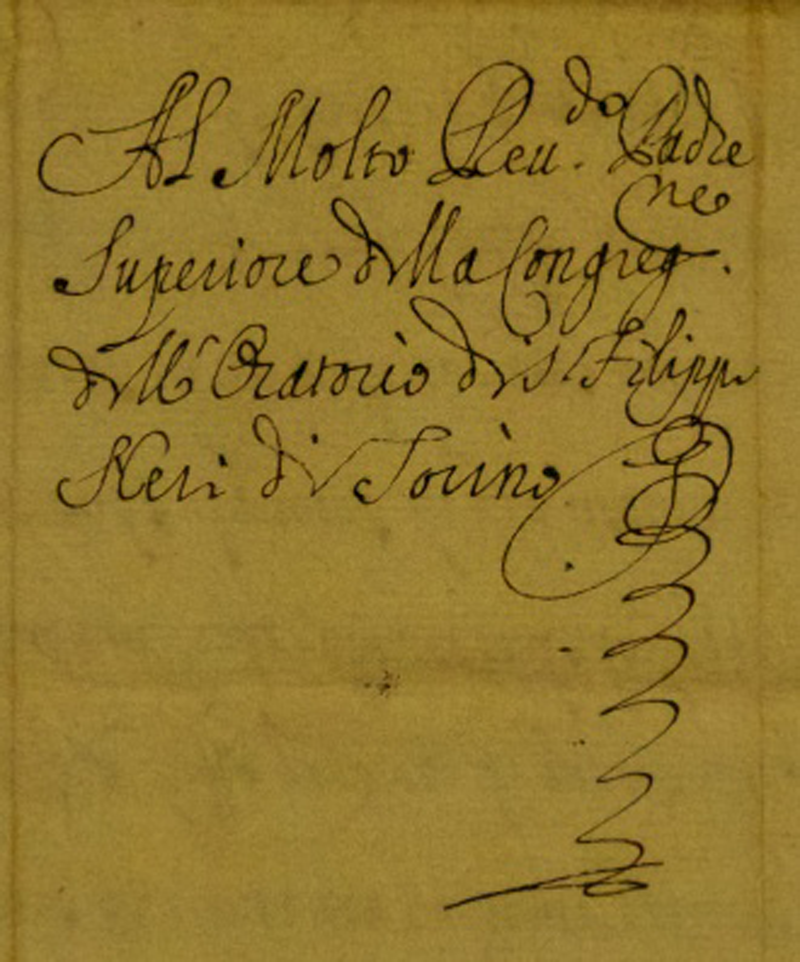 Al Molto Reu.do Padre
Superiore della Congreg.ne
dell' Oratorio di S. Filippo
Neri di Torino